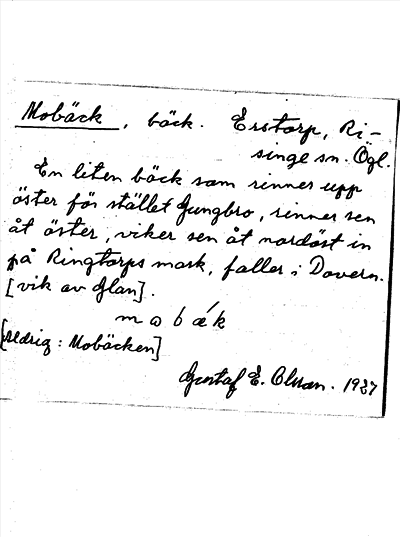 Mobäck, bäck. Erstorp, Ri-
singe sn. Ögl.
En liten bäck som rinner upp
öster för stället Ljungbro, rinner sen
åt öster, viker sen åt nordöst in
på Ringtorps mark, faller i Dovern.
[vik av Glan].
m o b ǽ k
: Mobäcken]
Gustaf E. Olsson. 1937